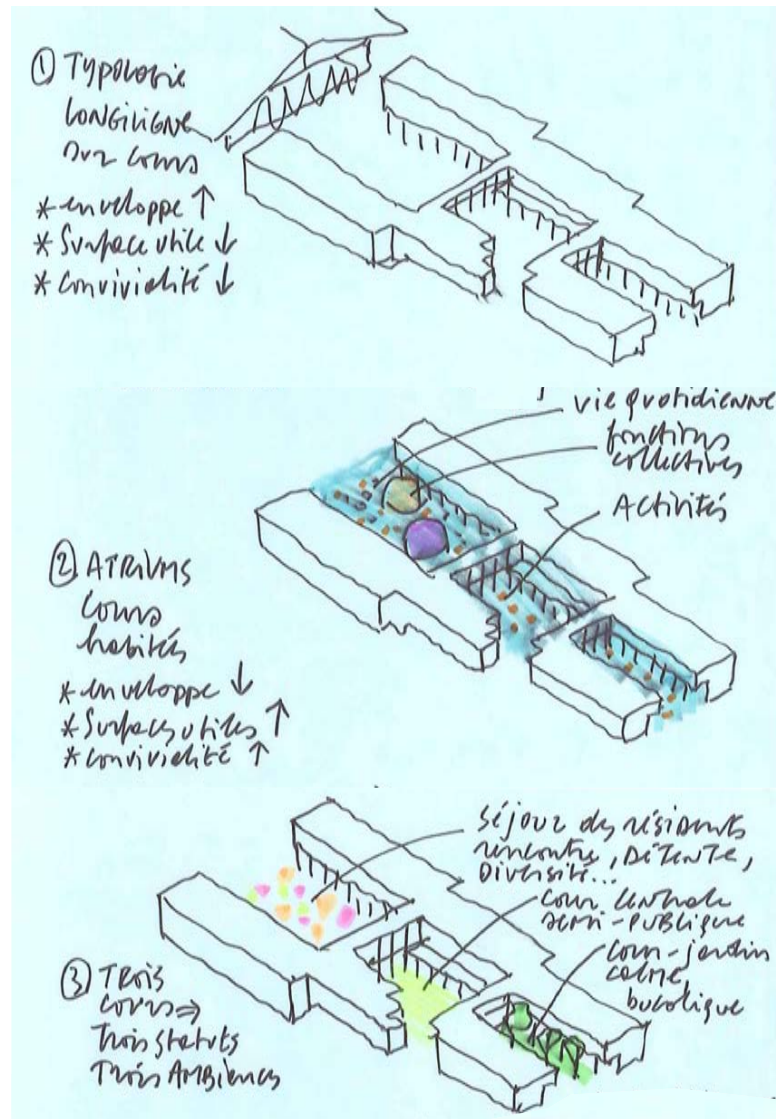 ① Typologie
LONGILIGNE
sur cours
* enveloppe ↑
* Surface utile ↓
* Convivialité ↓
vie quotidienne
fonctions
collectives
Activités
② ATRIUMS
Cours
habités
* enveloppe ↓
* Surfaces utiles ↑
* Convivialité ↑
Séjour des résidents
rencontres, DÉTENTE,
DIVERSITÉ...
cour centrale
semi-PUBLIQUE
cour-jardin
calme,
bucolique
③ TROIS
cours ⇒
Trois Statuts
Trois AMBIENCES